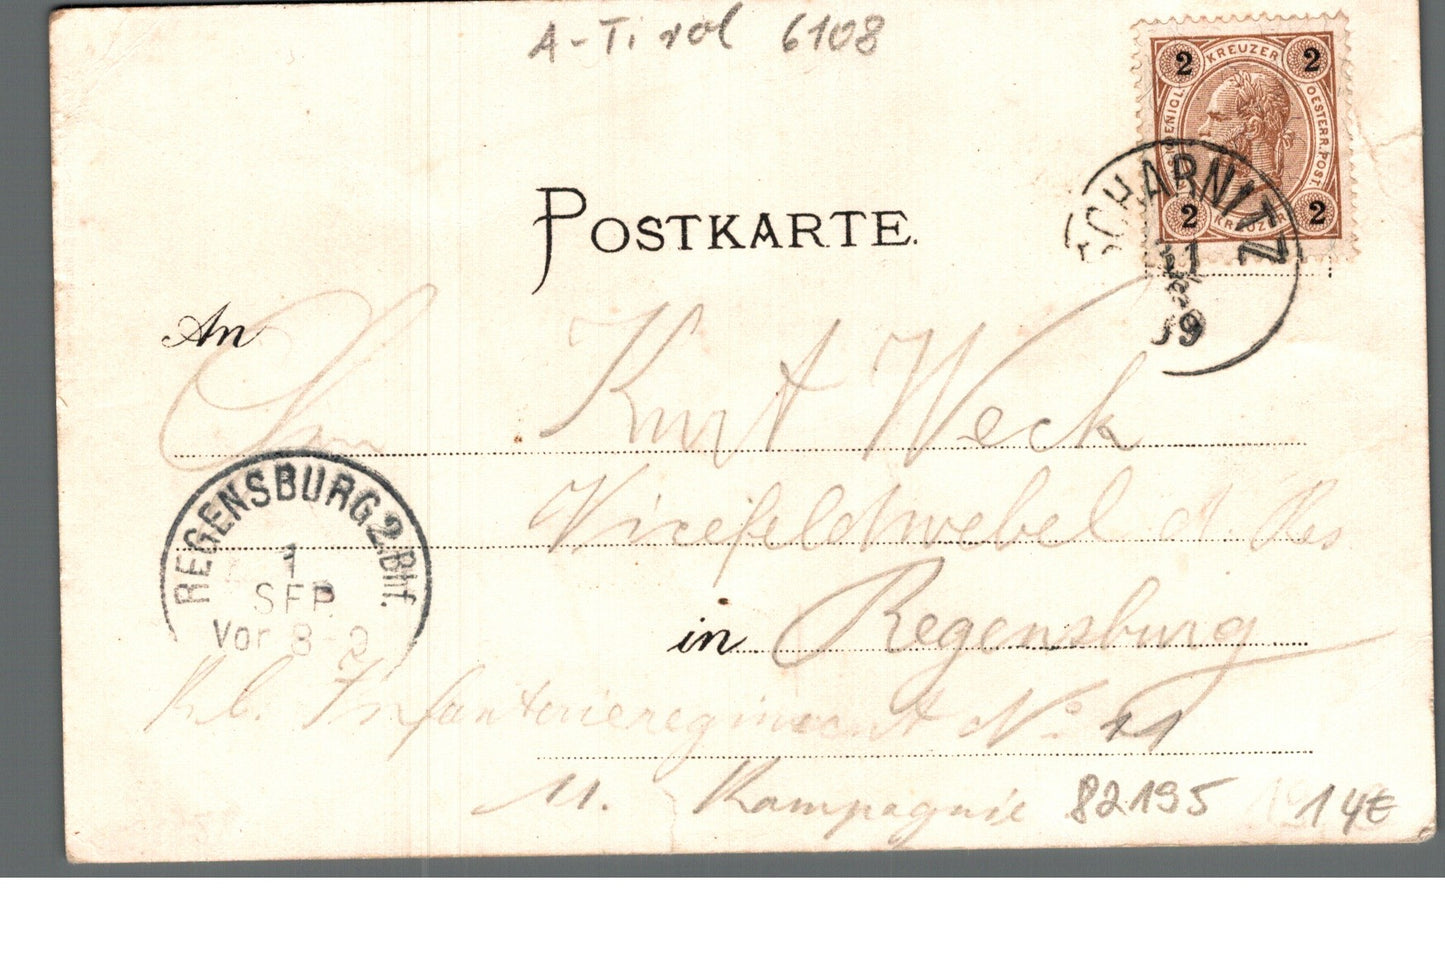 A-Tirol 6108
2 KREUZER 2
KOENIGL. OESTERR. POST
2 KREUZER 2
SCHARNITZ
31
99
POSTKARTE.
An
Kurt Weck
Vicefeldwebel d. Res
in Regensburg
REGENSBURG 2.Bhf.
1
SEP
Vor 8-9
Kb. Infanterieregiment No. 11
11. Kompagnie
82195 14€